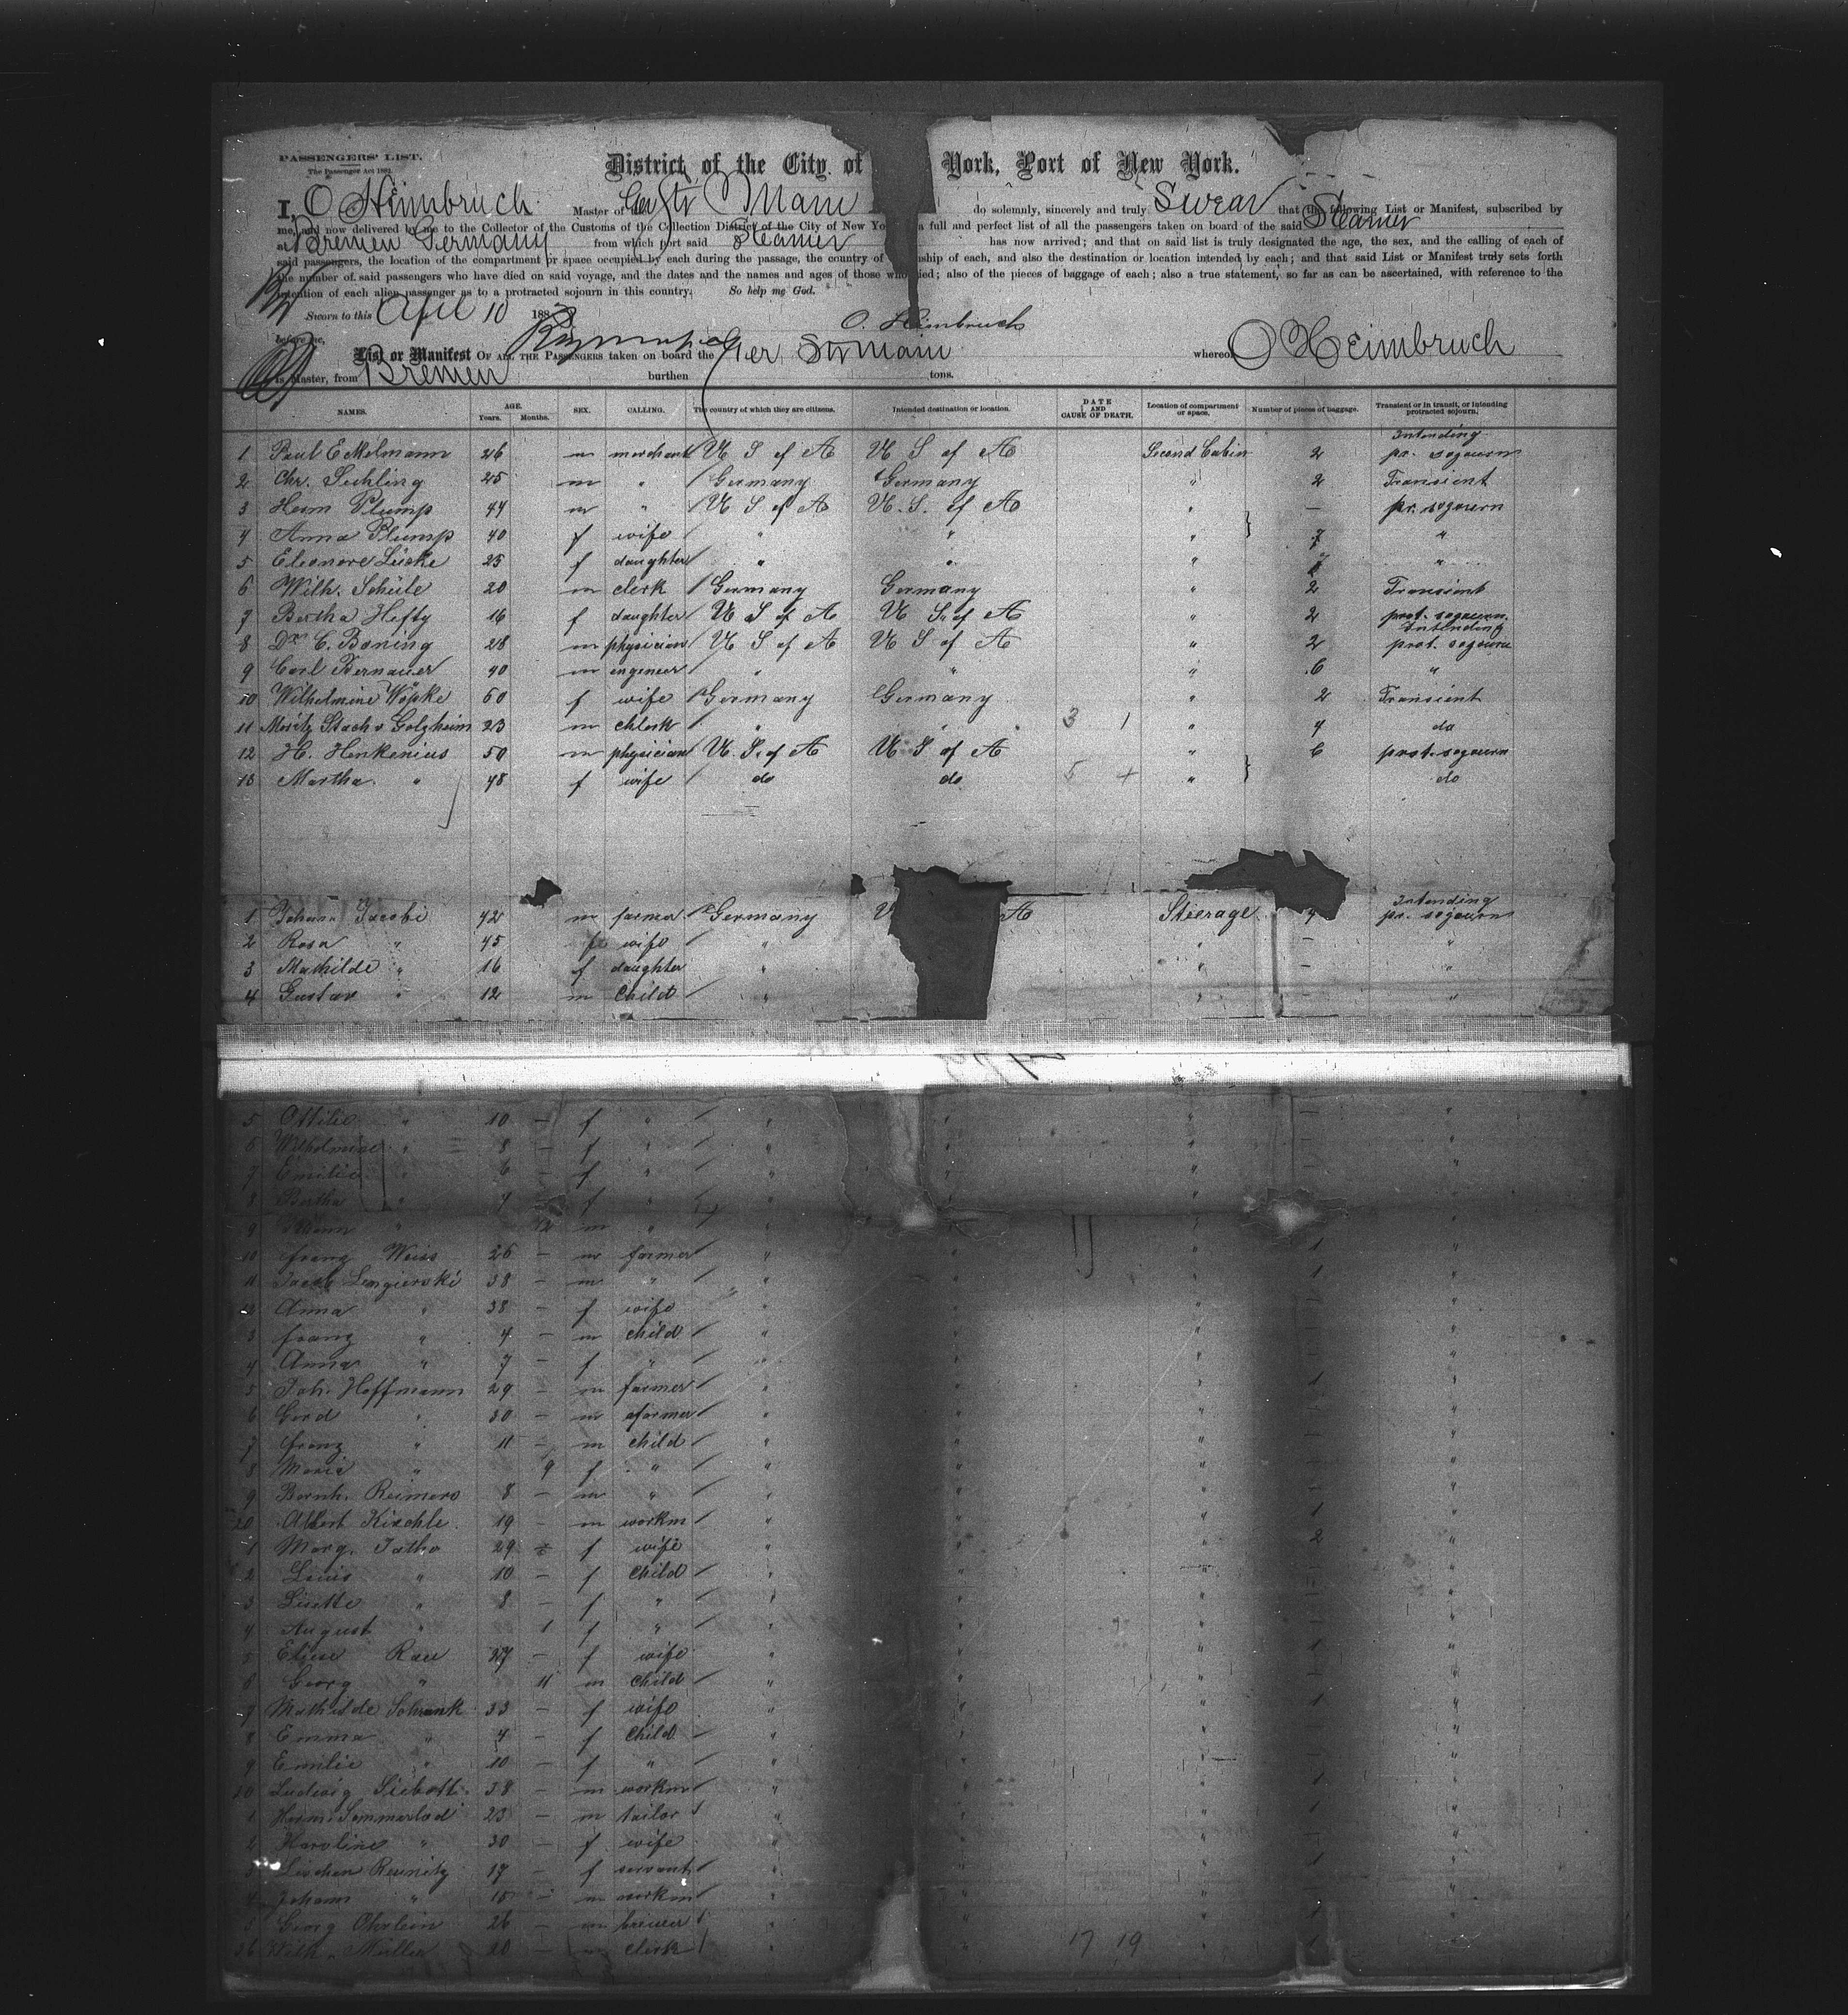 PASSENGERS' LIST.
The Passenger Act 1882.
District of the City of York, Port of New York.
I, O Heimbruch Master of Ger Str Main do solemnly, sincerely and truly Swear that the following List or Manifest, subscribed by
me, and now delivered by me to the Collector of the Customs of the Collection District of the City of New Yo a full and perfect list of all the passengers taken on board of the said Steamer
at Bremen Germany from which port said Steamer has now arrived; and that on said list is truly designated the age, the sex, and the calling of each of
said passengers, the location of the compartment or space occupied by each during the passage, the country of nship of each, and also the destination or location intended by each; and that said List or Manifest truly sets forth
the number of said passengers who have died on said voyage, and the dates and the names and ages of those who died; also of the pieces of baggage of each; also a true statement, so far as can be ascertained, with reference to the
intention of each alien passenger as to a protracted sojourn in this country. So help me God.
Sworn to this April 10 188
before me, O. Heimbruch
List or Manifest OF ALL THE PASSENGERS taken on board the Ger Str Main whereof O Heimbruch
is Master, from Bremen burthen tons.
NAMES. AGE. Years. Months. SEX. CALLING. The country of which they are citizens. Intended destination or location. DATE AND CAUSE OF DEATH. Location of compartment or space. Number of pieces of baggage. Transient or in transit, or intending protracted sojourn.
1 Paul Eckelmann 26 m merchant U S of A U S of A Second Cabin 2 Intending pr. sojourn
2 Chr. Sichling 25 m " Germany Germany " 2 Transient
3 Herm Plump 44 m " U S of A U. S. of A " — pr. sojourn
4 Anna Plump 40 f wife " " " 7 "
5 Eleonore Lücke 25 f daughter " " " "
6 Wilh. Schüle 20 m clerk Germany Germany " 2 Transient
7 Bertha Hefty 16 f daughter U S of A U S. of A " 2 prot. sojourn.
8 Dr. C. Boning 28 m physician U S of A U S of A " 2 Intending prot. sojourn
9 Carl Bernauer 40 m engineer " " " 6 "
10 Wilhelmine Wöpke 60 f wife Germany Germany " 2 Transient
11 Moritz Stach v Golzheim 23 m clerk " " 3 1 " 4 do
12 H. Henkenius 50 m physician U. S. of A U S of A " 6 prot. sojourn
13 Martha " 48 f wife do do 5 + " do
1 Johann Jacobi 42 m farmer Germany U A Steerage 4 Intending pr. sojourn
2 Rosa " 45 f wife " " — "
3 Mathilde " 16 f daughter " " — "
4 Gustav " 12 m Child " " — "
5 Ottilie " 10 — f " " " " — "
6 Wilhelmine " 8 — f " " " " — "
7 Emilie " 6 — f " " " " — "
8 Bertha " 4 — f " " "
9 " m " "
10 Franz Weiss 26 — m farmer " " " 1 "
11 Jacob Lengierski 38 — m " " " " 1 "
2 Anna " 38 — f wife " " " "
3 Franz " 4 — m child " " " "
4 Anna " 7 — f " " " " "
5 Joh. Hoffmann 29 — m farmer " " " 1 "
6 Gerd " 30 — m farmer " " " "
7 Franz " 11 — m child " " " "
8 Maria " 9 f " " " " "
9 Bernh. Reimers 8 — m " " " " "
20 Albert Kischle 19 — m workm " " " 1 "
1 Marg. Tatho 29 f wife " " " 2 "
2 Louis " 10 — f Child " " " — "
3 Lisette " 8 — f " " " " — "
4 August " 1 f " " " " "
5 Elise Rau 27 — f wife " " " 1 "
6 Georg " 11 m Child " " " "
7 Mathilde Schrank 33 — f wife " " " 1 "
8 Emma " 4 — f Child " " " "
9 Emilie " 10 — f " " " " "
30 Ludwig 38 — m workm " " " 1 "
1 Herm. Sommerlad 23 — m tailor " " " 1 "
2 Karoline " 30 — f wife " " " "
3 Lischen Reunitz 17 — f servant " " " 1 "
4 Johann " 15 — m workm " " " "
5 Georg Ohrlein 26 — m brewer " " 1 "
36 Wilh. Müller 20 — clerk " 17 19 1